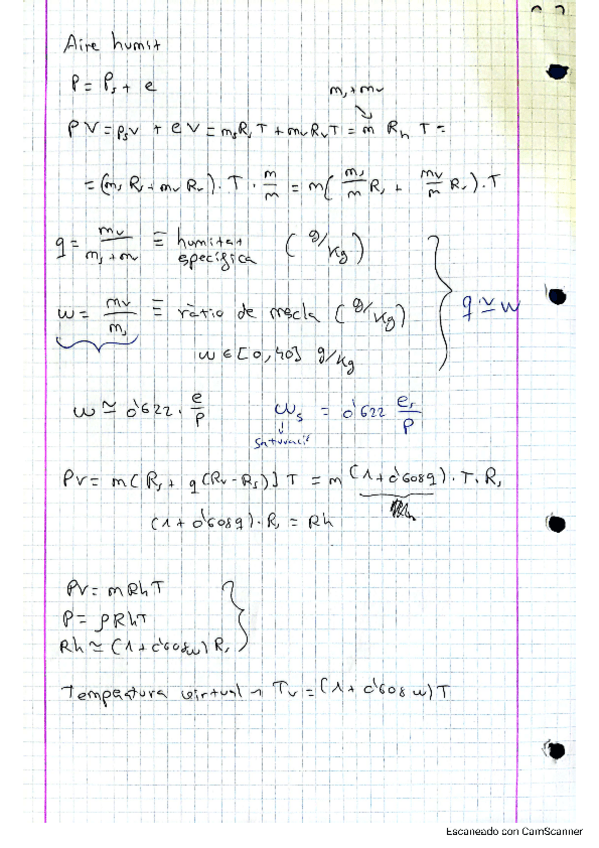 Aire humit
P = Ps + e
ms + mv
PV = PsV + eV = msRsT + mvRvT = m Rh T =
= (ms Rs + mv Rv) · T · m/m = m(ms/m Rs + mv/m Rv) · T
q = mv/(ms + mv) ≡ humitat específica (g/kg)
w = mv/ms ≡ ràtio de mescla (g/kg)
q ≃ w
w ∈ [0,40] g/kg
w ≃ 0'622 · e/P
ws = 0'622 es/P
saturació
PV = m[Rs + q(Rv - Rs)] T = m (1 + 0'608q) · T · Rs
(1 + 0'608q) · Rs = Rh
PV = mRhT
P = ρRhT
Rh ≃ (1 + 0'608w) Rs
Temperatura virtual → Tv = (1 + 0'608 w) T
Escaneado con CamScanner